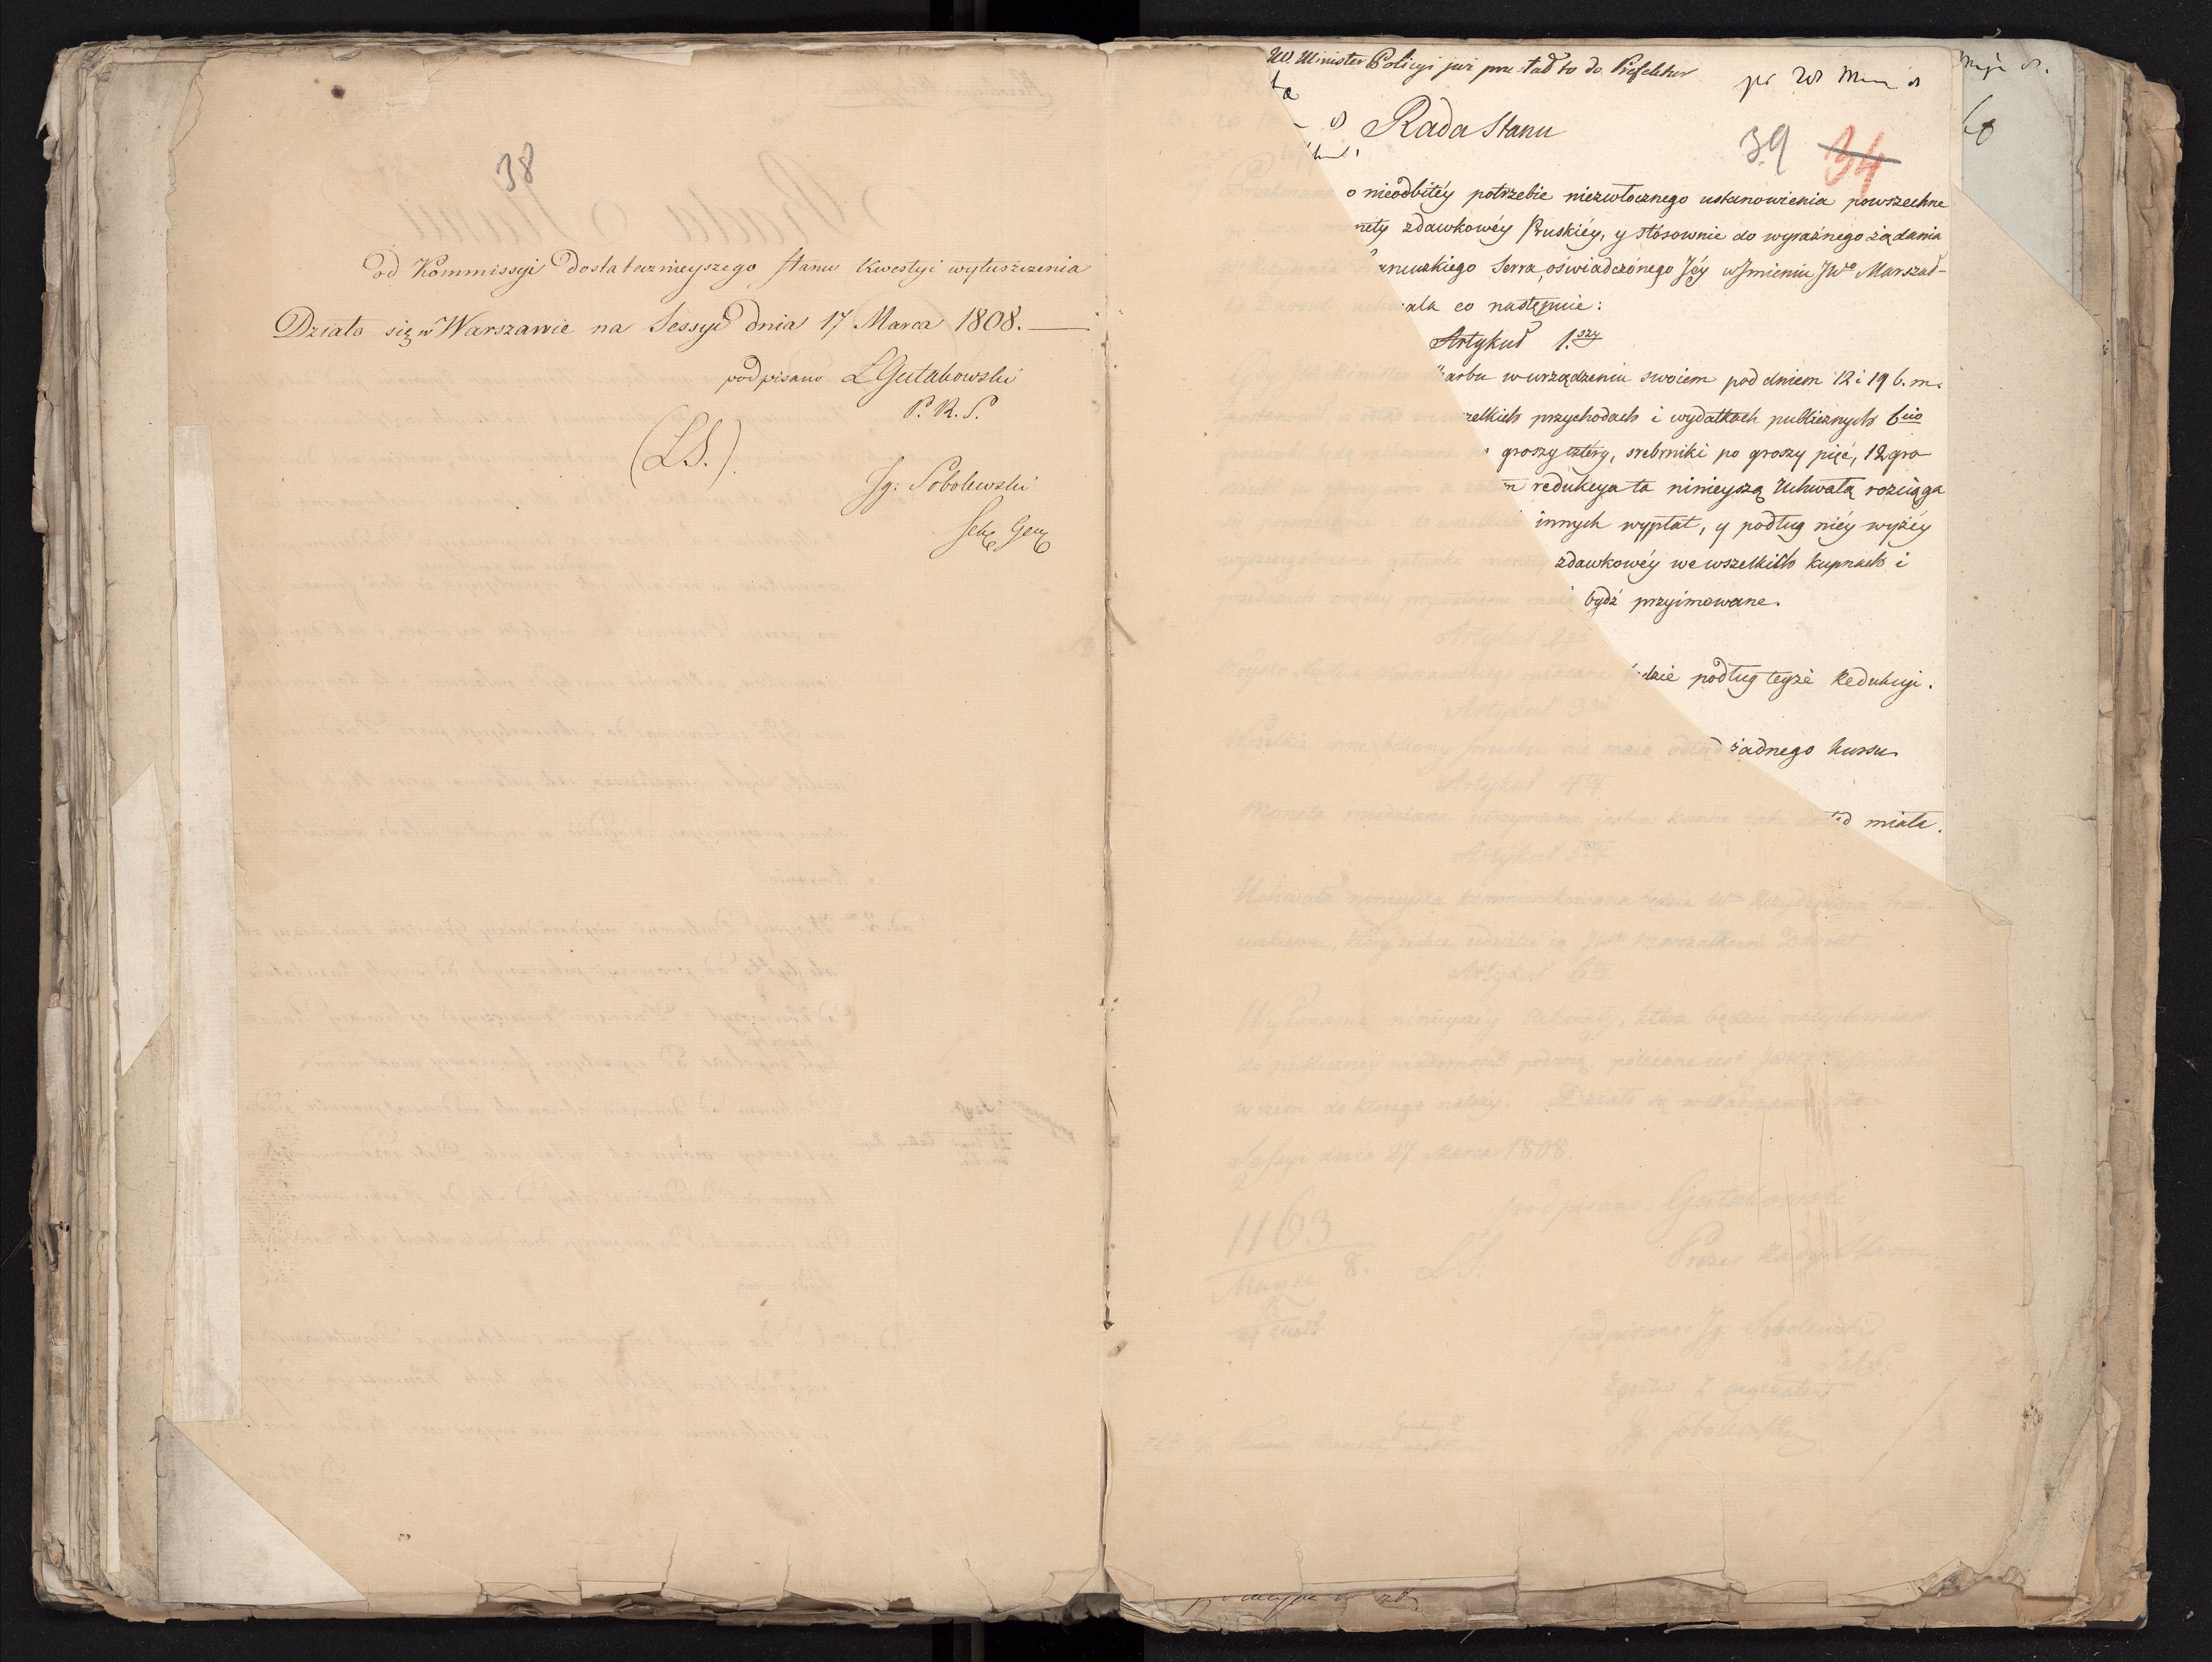 38
od Kommissyi dostatecznieyszego stanu kwestyi wyłuszczenia
Działo się w Warszawie na Sessyi dnia 17 Marca 1808.
podpisano LGutakowski
P. R. S.
(LS.)
Jg: Sobolewski
Sek Gen
W. Minister Policyi już do Prefektur
39 34
Rada Stanu
o nieodbitéy potrzebie niezwłocznego ustanowienia powszechne
monety zdawkowéy Pruskiéy, y stósownie do wyraźnego żądania
Rezydenta Francuzkiego Serra, oświadczónego Jéy w Jmieniu JWo Marszał-
ka Davout uchwala co następuie:
Artykuł 1.szy
Gdy JW Minister Skarbu w urządzeniu swoiem pod dniem 12 i 19 b. m.
postanowił, iż odtąd we wszelkich przychodach i wydatkach publicznych 6cio
groszówki będą rachowane po groszy cztéry, srebrniki po groszy pięć, 12 gro
redukcya ta ninieyszą Uchwałą rozciąga
się powszechnie i do wszelkich innych wypłat, y podług niéy wyżéy
wyszczególnione gatunki monety zdawkowéy we wszelkich kupnach i
przedażach bydź przyimowane.
Artykuł 2gi
Woysko Xięstwa Warszawskiego opłacane będzie podług teyże Redukcyi.
Artykuł 3ci
Wszelkie inne billony pruskie nie maią odtąd żadnego kursu
Artykuł 4ty
Moneta miedziana utrzymana iest w kursie iaki dotąd miała.
Artykuł 5ty
Uchwała ninieysza kommunikowana będzie Wmu Rezydentowi Fran-
cuzkiemu, który zechce udzielić ią JWmu Marszałkowi Davout
Artykuł 6ty
Wykonanie ninieyszey Uchwały, która będzie natychmiast
do publiczney wiadomości podaną, polécone iest
w czém do którego należy. Działo się w Warszawie na
Sessyi dnia 27 Marca 1808.
podpisano Gutakowski
1163
LS.
Prezes Rady Stanu
podpisano Jg. Sobolewski
Zgodno z oryginałem
Jg Sobolewski